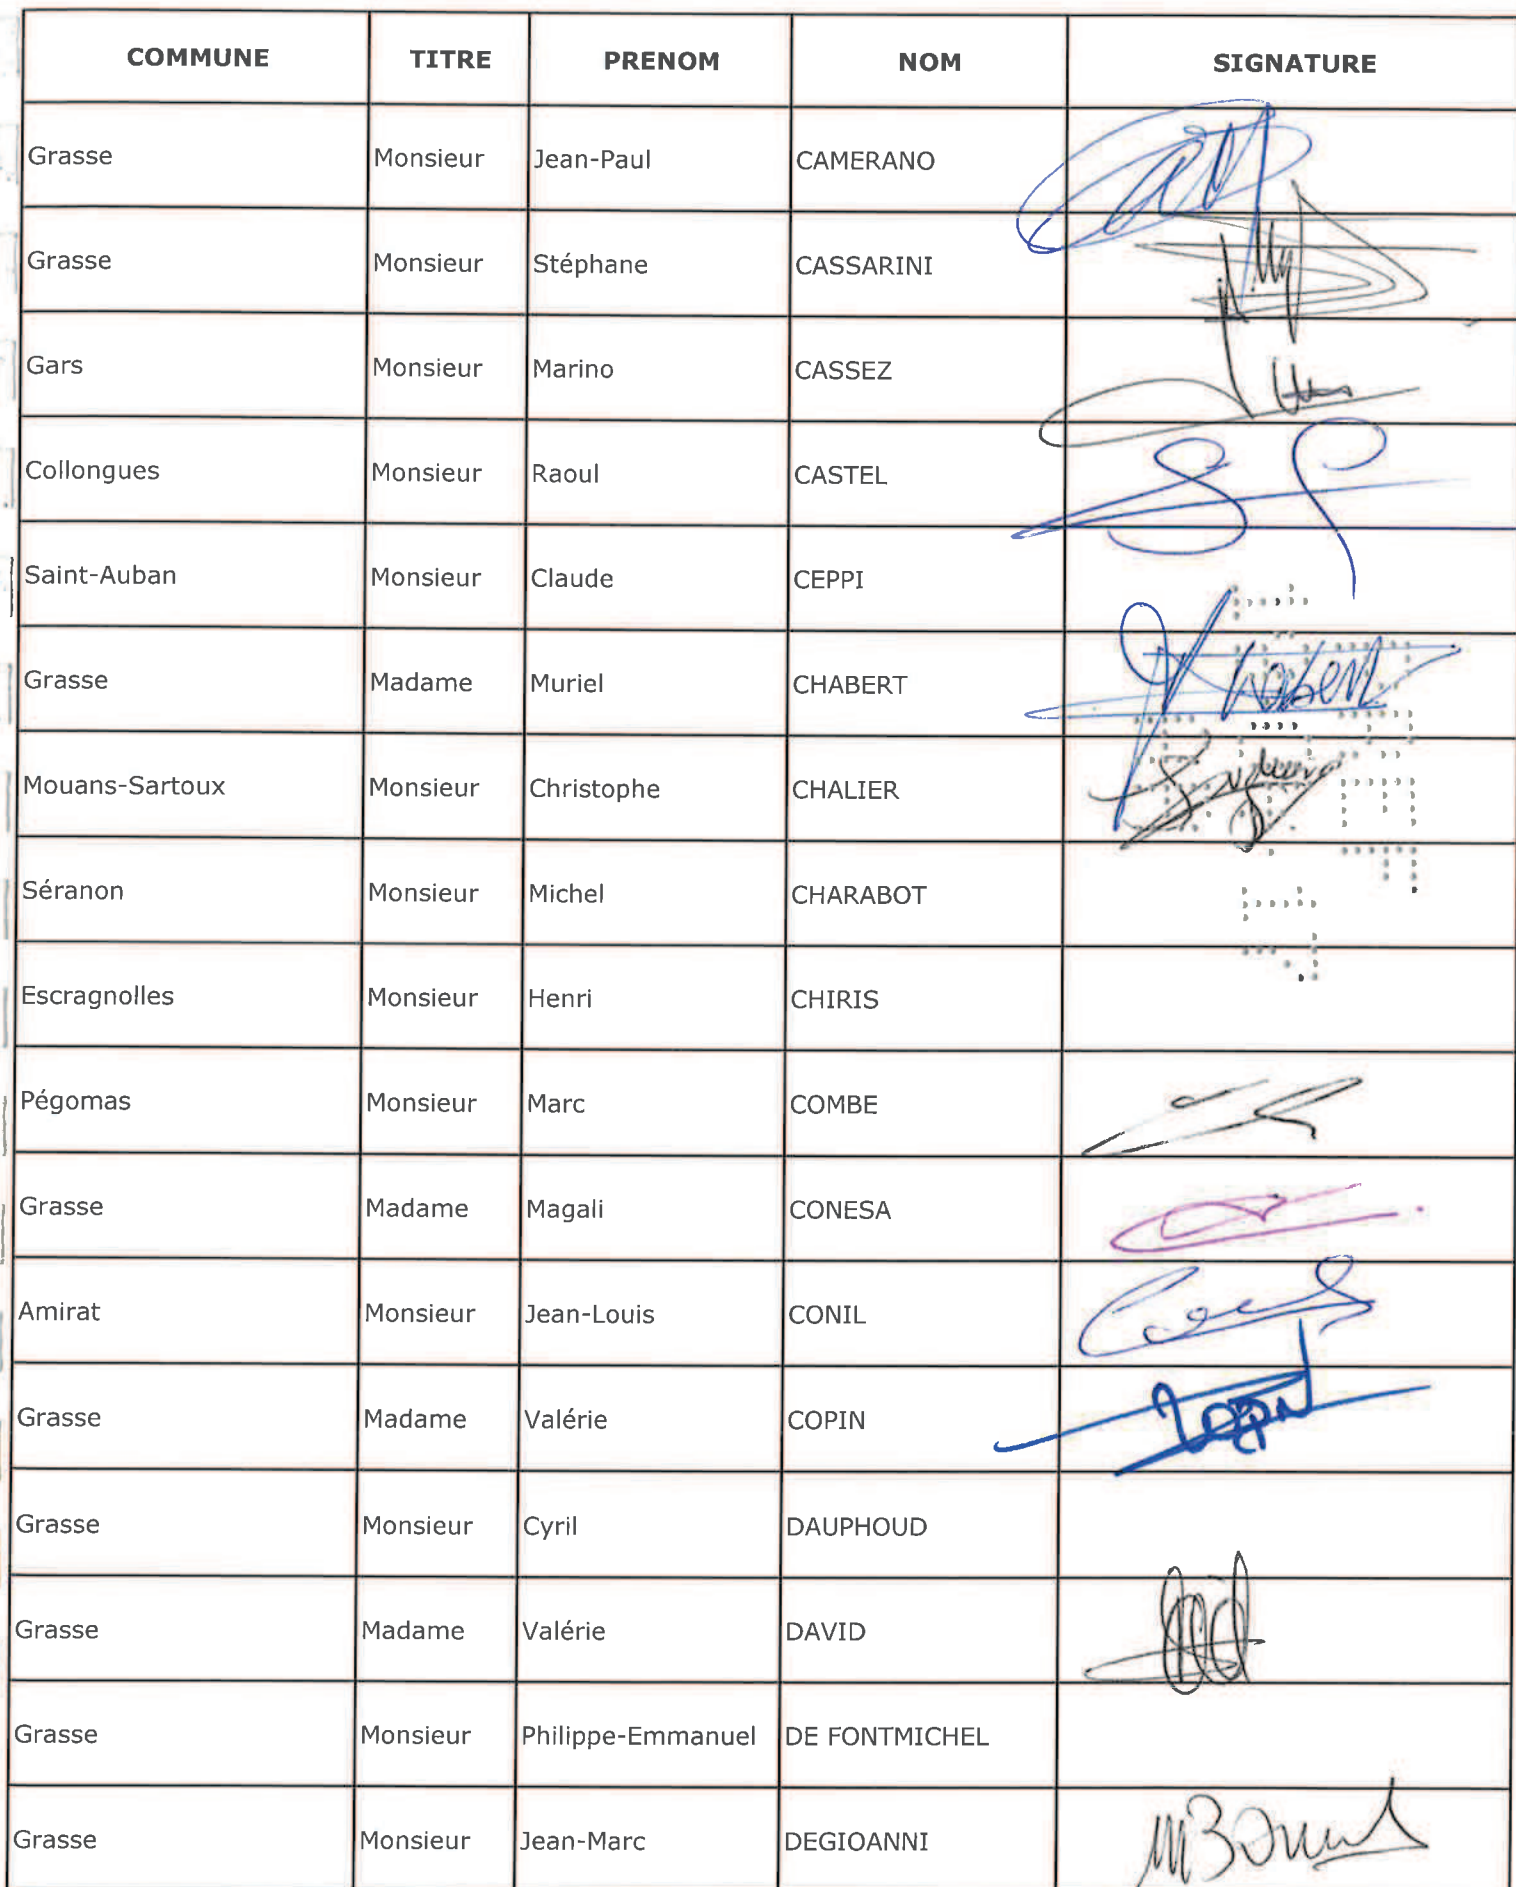 COMMUNE TITRE PRENOM NOM SIGNATURE
Grasse Monsieur Jean-Paul CAMERANO
Grasse Monsieur Stéphane CASSARINI
Gars Monsieur Marino CASSEZ
Collongues Monsieur Raoul CASTEL
Saint-Auban Monsieur Claude CEPPI
Grasse Madame Muriel CHABERT
Mouans-Sartoux Monsieur Christophe CHALIER
Séranon Monsieur Michel CHARABOT
Escragnolles Monsieur Henri CHIRIS
Pégomas Monsieur Marc COMBE
Grasse Madame Magali CONESA
Amirat Monsieur Jean-Louis CONIL
Grasse Madame Valérie COPIN
Grasse Monsieur Cyril DAUPHOUD
Grasse Madame Valérie DAVID
Grasse Monsieur Philippe-Emmanuel DE FONTMICHEL
Grasse Monsieur Jean-Marc DEGIOANNI